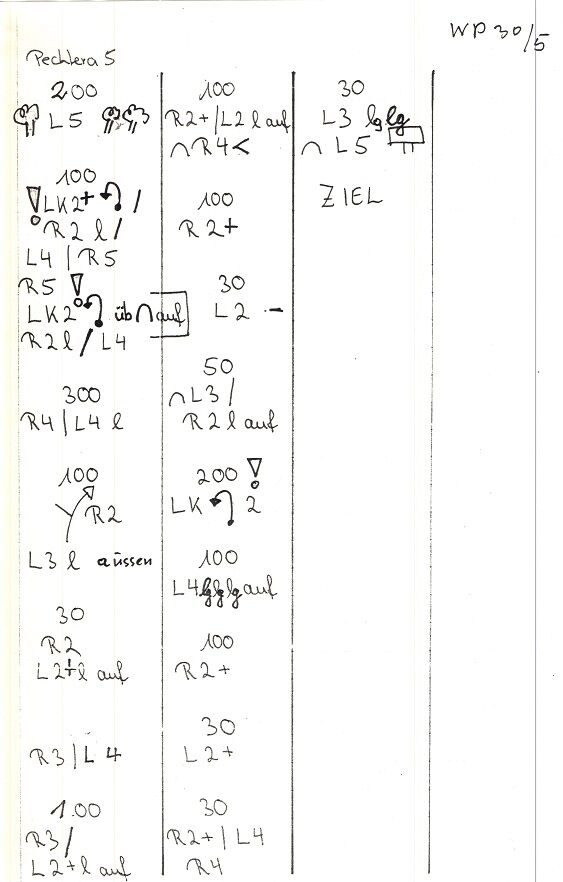 WP 30/5
Pechtera 5
200
L5
100
! LK2+ /
R2 l /
L4 | R5
R5 !
LK2 üb ∩ auf
R2 l / L4
300
R4 | L4 l
100
R2
L3 l aussen
30
R2
L2+ l auf
R3 | L 4
100
R3 /
L2+ l auf
100
R2+ | L2 l auf
∩ R4 <
100
R2+
30
L2 -
50
∩ L3 /
R2 l auf
200 !
LK 2
100
L4 lglglg auf
100
R2+
30
L2+
30
R2+ | L4
R4
30
L3 lglg
∩ L5
ZIEL